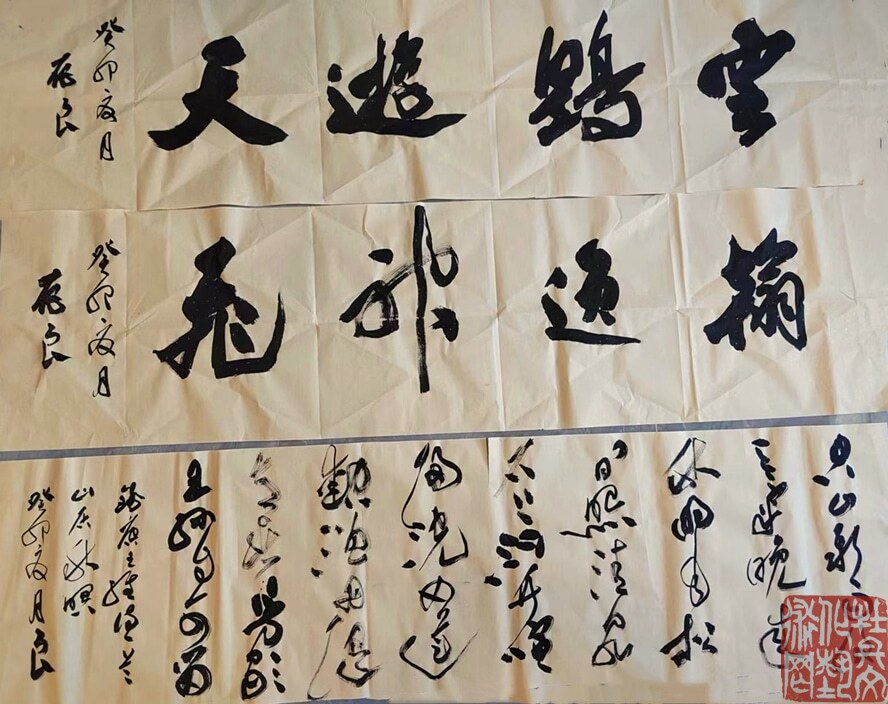 雲鵠遊天
癸卯夏月
存良
翰逸神飛
癸卯夏月
存良
空山新雨後
天氣晚來
秋明月松
間照清泉
石上流竹喧
歸浣女蓮
動下漁舟隨
意春芳歇
王孫自可留
錄唐王維詩
山居秋暝
癸卯夏月良